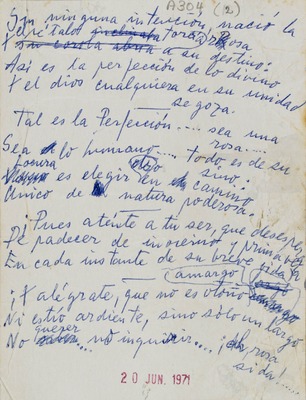 A304 (2)
Sin ninguna intención, nació la
rosa
a su destino:
Así es la perfección de lo divino
Y el dios cualquiera en su unidad
se goza.
Tal es la Perfección..... sea una
rosa....
Sea lo humano..... todo es de su
sino:
Locura es elegir camino
Único de natura poderosa.
Pues aténte a tu ser, que
De padecer de invierno y primavera
En cada instante de su breve
(amargo)
¡Y alégrate, que no es otoño
Ni estío ardiente, sino sólo un largo
querer
No ..... no inquirir....., ¡ rosa
sida!....
20 JUN. 1971